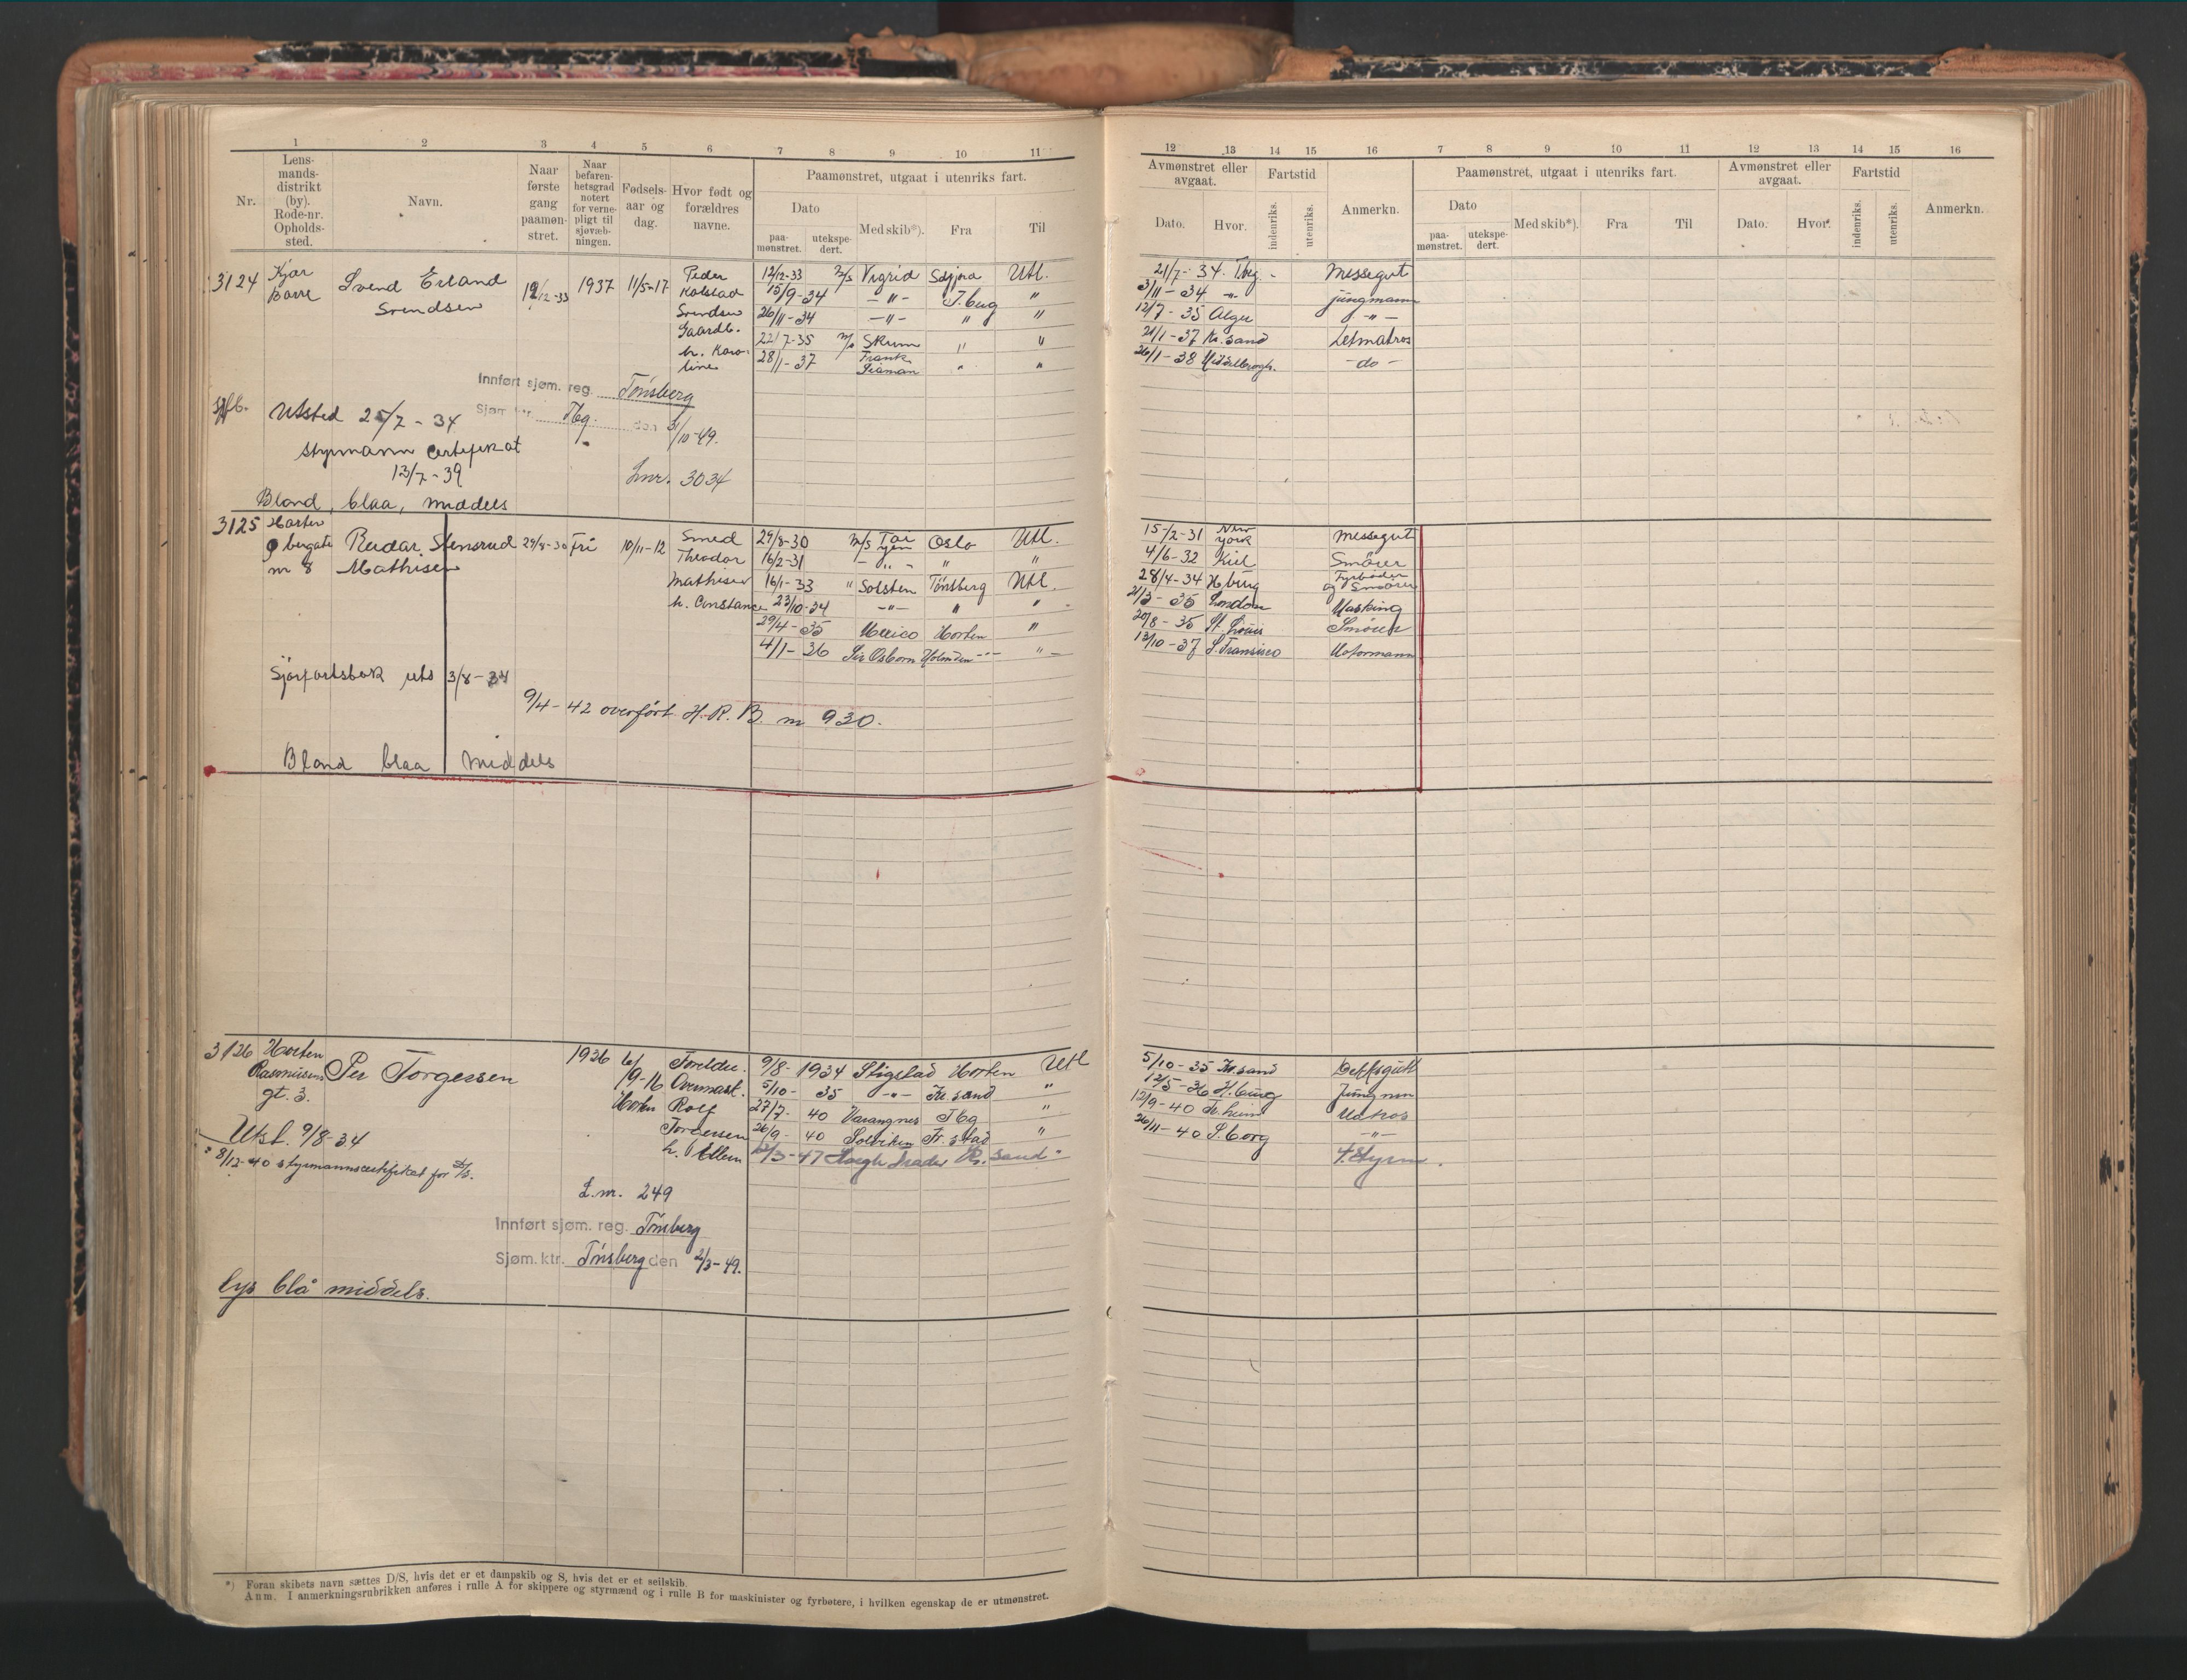 1 2 3 4 5 6 7 8 9 10 11
Nr.
Lens-
mands-
distrikt
(by).
Rode-nr.
Opholds-
sted.
Navn.
Naar
første
gang
paamøn-
stret.
Naar
befaren-
hetsgrad
notert
for verne-
pligt til
sjøvæb-
ningen.
Fødsels-
aar og
dag.
Hvor født og
forældres
navne.
Paamønstret, utgaat i utenriks fart.
Dato
paa-
mønstret.
utekspe-
dert.
Med skib*).
Fra
Til
3124 Kjær
Borre
Svend Erland
Svendsen
12/12-33 1937 11/5-17
Peder
Kolstad
Svendsen
Gaardb.
h. Karo-
line
12/12-33 M/S Vigrid Utl.
15/9-34 -"- T.berg "
26/11-34 -"- " "
22/7-35 M/S Skrim " "
28/1-37 Frank
Seaman " "
Innført sjøm. reg. Tønsberg
Sjøm. ktr. Tbg. den 31/10-49.
Utsted 25/7-34
Styrmann Certifikat
13/7-39
Lnr. 3034
Blond, blaa, middels
3125 Horten
bergate
nr 8
Reidar Stensrud
Mathisen
29/8-30 Fri 10/11-12
Smed
Theodor
Mathisen
h. Constance
29/8-30 M/S Tai
Yin Oslo Utl.
16/2-31 -"- " "
16/1-33 " Solsten Tønsberg Utl.
23/10-34 -"- " "
29/4-35 Mexico Horten "
4/1-36 Sir Osborn Holmden -"-
Sjøfartsbok uts 3/8-34
9/4-42 overført H.R.B. nr 930.
Blond blaa middels
3126 Horten
Rasmussens
gt. 3.
Per Torgersen
1936 6/
9-16
Horten
Foreldre:
Overmask.
Rolf
Torgersen
h. Ellen
9/8-1934 Stigstad Horten Utl
5/10-35 -"- Kr.sand "
27/7-40 Varangnes Tbg "
26/9-40 Solviken Fr.stad "
/3-47 Kr.sand "
Utst. 9/8-34
8/12-40 styrmannscertifikat for D/S.
L.nr. 249
Innført sjøm. reg. Tønsberg
Sjøm. ktr. Tønsberg den 2/3-49.
lys blå middels.
*) Foran skibets navn sættes D/S, hvis det er et dampskib og S, hvis det er et seilskib.
Anm. I anmerkningsrubrikken anføres i rulle A for skippere og styrmænd og i rulle B for maskinister og fyrbøtere, i hvilken egenskap de er utmønstret.
12 13 14 15 16 7 8 9 10 11 12 13 14 15 16
Avmønstret eller
avgaat.
Dato. Hvor.
Fartstid
indenriks.
utenriks.
Anmerkn.
Paamønstret, utgaat i utenriks fart.
Dato
paa-
mønstret.
utekspe-
dert.
Med skib*).
Fra
Til
Avmønstret eller
avgaat.
Dato. Hvor.
Fartstid
indenriks.
utenriks.
Anmerkn.
21/7-34 Tbg - Messegut
3/11-34 -"- jungmann
12/7-35 Alger -"-
21/1-37 Kr.sand Letmatros
26/1-38 Middelbrogh. -do-
15/2-31 New
York Messegut
4/6-32 Kiel Smører
28/4-34 Hburg Fyrbøder
og Smører
21/3-35 London Masking
20/8-35 St. Louis Smører
13/10-37 S. Fransisco Motormann
5/10-35 Kr.sand Dekksgutt
12/5-36 H.burg Jungmn
12/9-40 Tr.heim Matros
26/11-40 S.borg -"-
4. Styrm.